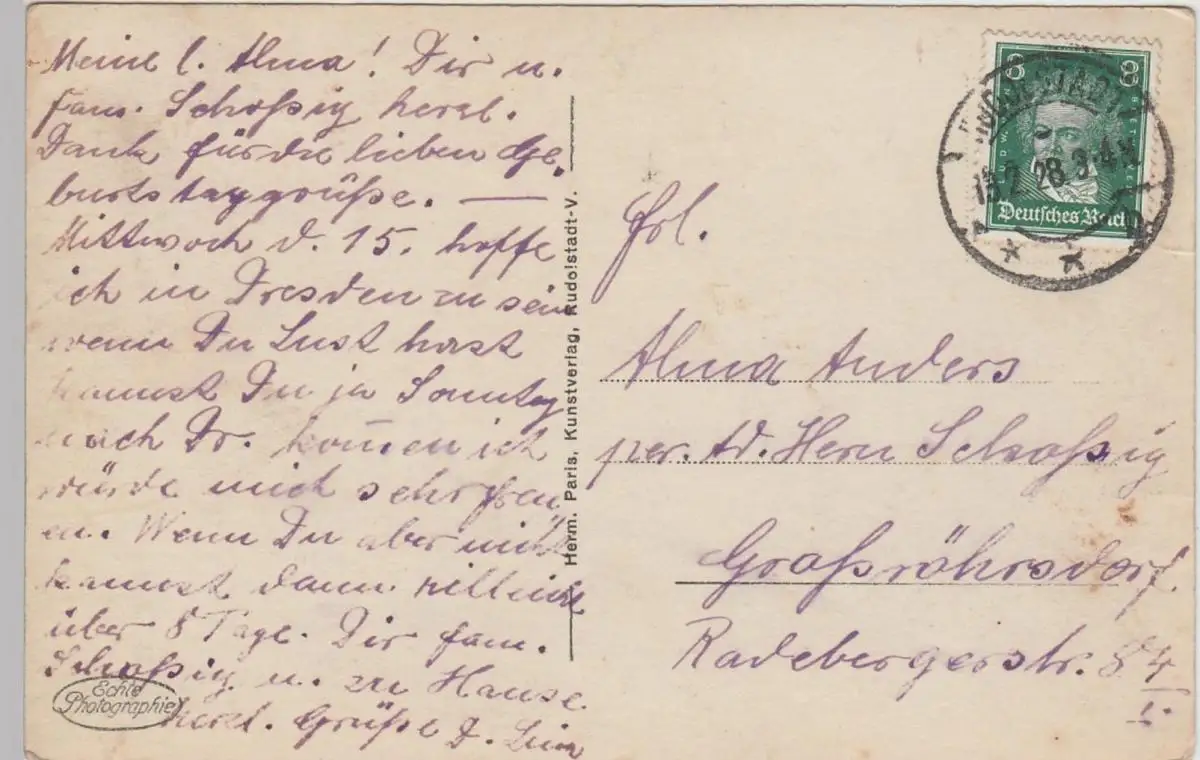 Meine l. Alma! Dir u.
Fam. Schoßig herzl.
Dank für die lieben Ge-
burtstaggrüße. —
Mittwoch d. 15. hoffe
ich in Dresden zu sein
wenn Du Lust hast
kannst Du ja Sonntag
nach Dr. kom̄en ich
würde mich sehr freu
en. Wenn Du aber nicht
kannst dann
über 8 Tage. Dir Fam.
Schoßig u. zu Hause
herzl. Grüße D.
Echte
Photographie
Herm. Paris, Kunstverlag, Rudolstadt-V.
8 8
Deutsches Reich
2. 28. 3-4 N
Frl.
Alma Anders
per. Ad. Herrn Schoßig
Großröhrsdorf.
Radebergerstr. 84
I.